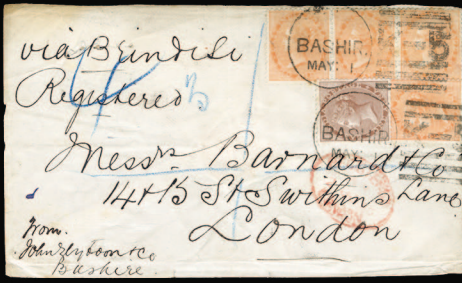 via Brindisi
Registered
BASHIR.
MAY. 1
BASHIR.
MAY
Messrs Barnard & Co
14 & 15 St Swithins Lane
London
From.
John & Co
Bushire.